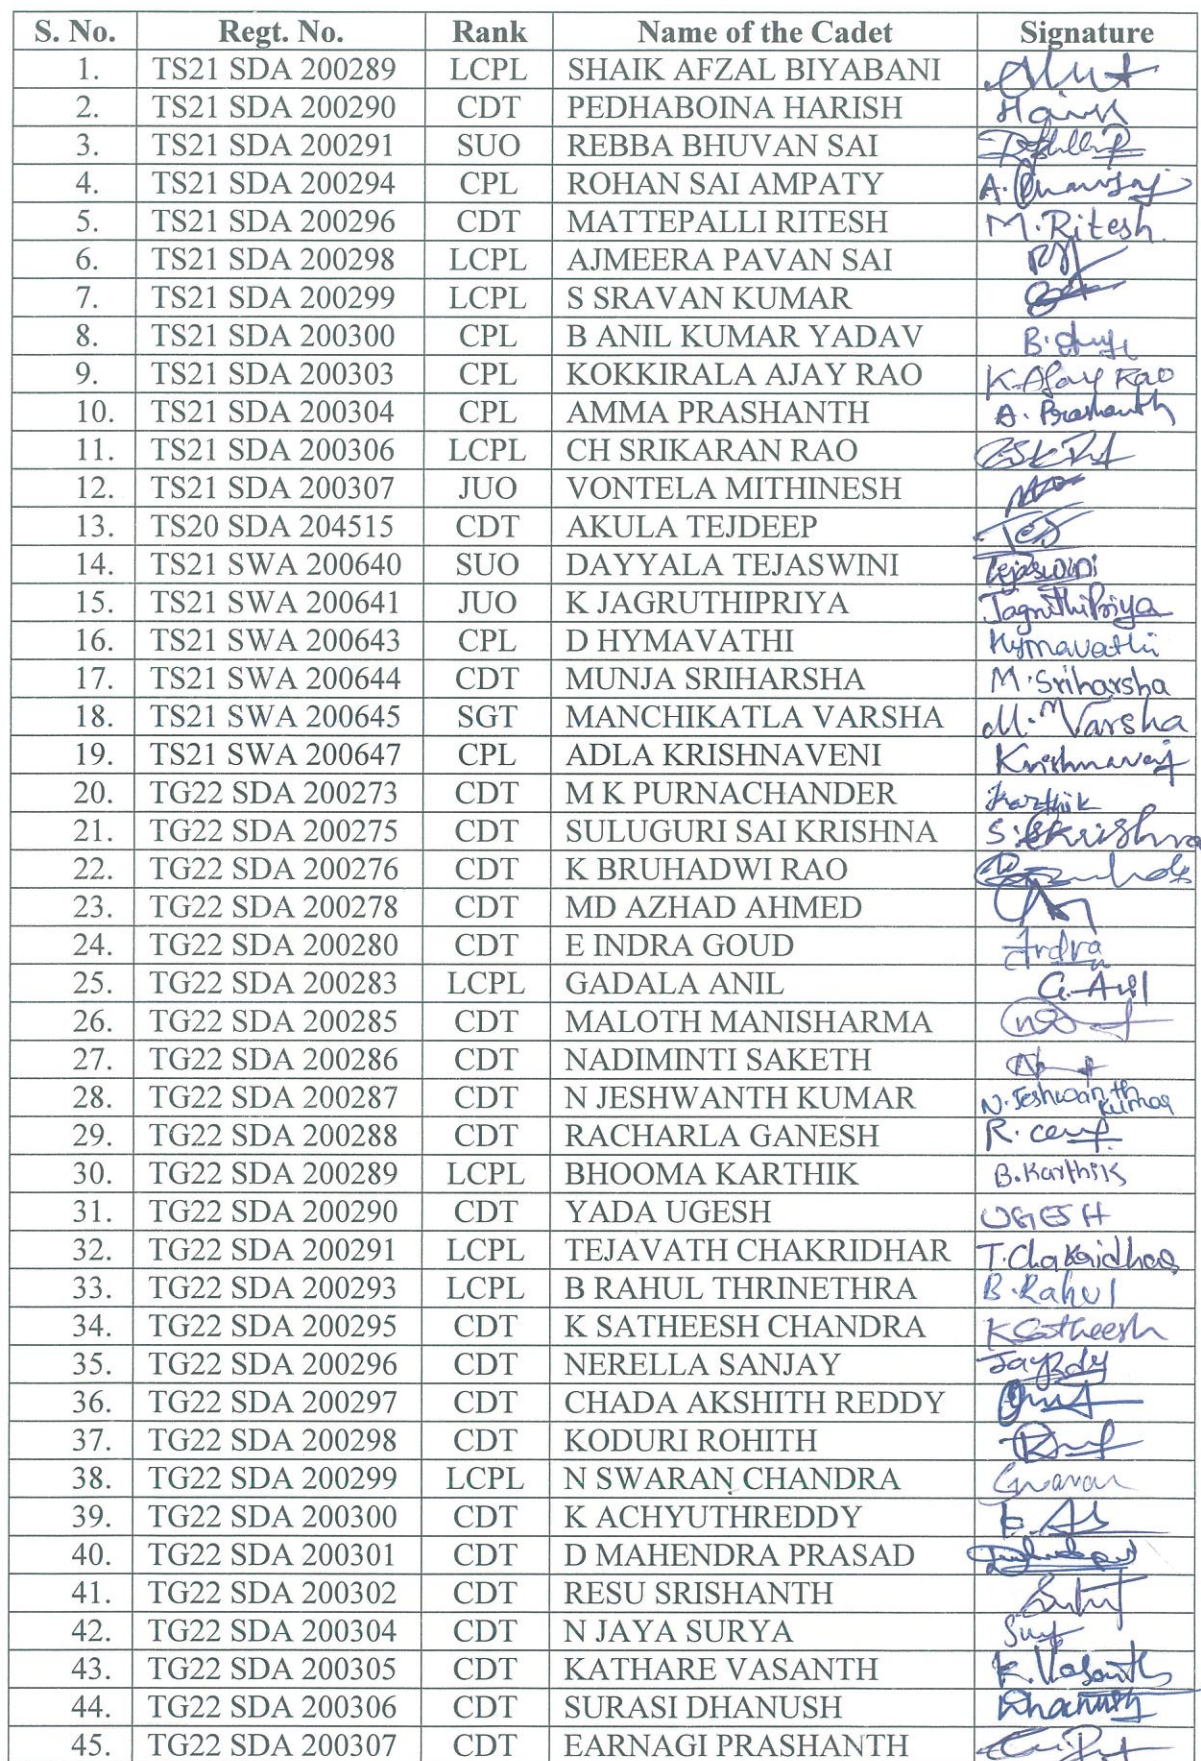 S. No. Regt. No. Rank Name of the Cadet Signature
1. TS21 SDA 200289 LCPL SHAIK AFZAL BIYABANI
2. TS21 SDA 200290 CDT PEDHABOINA HARISH
3. TS21 SDA 200291 SUO REBBA BHUVAN SAI
4. TS21 SDA 200294 CPL ROHAN SAI AMPATY
5. TS21 SDA 200296 CDT MATTEPALLI RITESH M.Ritesh
6. TS21 SDA 200298 LCPL AJMEERA PAVAN SAI
7. TS21 SDA 200299 LCPL S SRAVAN KUMAR
8. TS21 SDA 200300 CPL B ANIL KUMAR YADAV
9. TS21 SDA 200303 CPL KOKKIRALA AJAY RAO K.Ajay Rao
10. TS21 SDA 200304 CPL AMMA PRASHANTH A. Prashanth
11. TS21 SDA 200306 LCPL CH SRIKARAN RAO
12. TS21 SDA 200307 JUO VONTELA MITHINESH
13. TS20 SDA 204515 CDT AKULA TEJDEEP
14. TS21 SWA 200640 SUO DAYYALA TEJASWINI Tejaswini
15. TS21 SWA 200641 JUO K JAGRUTHIPRIYA JagruthiPriya
16. TS21 SWA 200643 CPL D HYMAVATHI Hymavathi
17. TS21 SWA 200644 CDT MUNJA SRIHARSHA M.Sriharsha
18. TS21 SWA 200645 SGT MANCHIKATLA VARSHA M. Varsha
19. TS21 SWA 200647 CPL ADLA KRISHNAVENI
20. TG22 SDA 200273 CDT M K PURNACHANDER Karthik
21. TG22 SDA 200275 CDT SULUGURI SAI KRISHNA
22. TG22 SDA 200276 CDT K BRUHADWI RAO
23. TG22 SDA 200278 CDT MD AZHAD AHMED
24. TG22 SDA 200280 CDT E INDRA GOUD Indra
25. TG22 SDA 200283 LCPL GADALA ANIL G.Anil
26. TG22 SDA 200285 CDT MALOTH MANISHARMA
27. TG22 SDA 200286 CDT NADIMINTI SAKETH
28. TG22 SDA 200287 CDT N JESHWANTH KUMAR N.Jeshwanth Kumar
29. TG22 SDA 200288 CDT RACHARLA GANESH
30. TG22 SDA 200289 LCPL BHOOMA KARTHIK B.Karthik
31. TG22 SDA 200290 CDT YADA UGESH UGESH
32. TG22 SDA 200291 LCPL TEJAVATH CHAKRIDHAR T.Chakridhar
33. TG22 SDA 200293 LCPL B RAHUL THRINETHRA B.Rahul
34. TG22 SDA 200295 CDT K SATHEESH CHANDRA K Satheesh
35. TG22 SDA 200296 CDT NERELLA SANJAY
36. TG22 SDA 200297 CDT CHADA AKSHITH REDDY
37. TG22 SDA 200298 CDT KODURI ROHITH
38. TG22 SDA 200299 LCPL N SWARAN CHANDRA
39. TG22 SDA 200300 CDT K ACHYUTHREDDY
40. TG22 SDA 200301 CDT D MAHENDRA PRASAD
41. TG22 SDA 200302 CDT RESU SRISHANTH
42. TG22 SDA 200304 CDT N JAYA SURYA
43. TG22 SDA 200305 CDT KATHARE VASANTH K.Vasanth
44. TG22 SDA 200306 CDT SURASI DHANUSH Dhanush
45. TG22 SDA 200307 CDT EARNAGI PRASHANTH